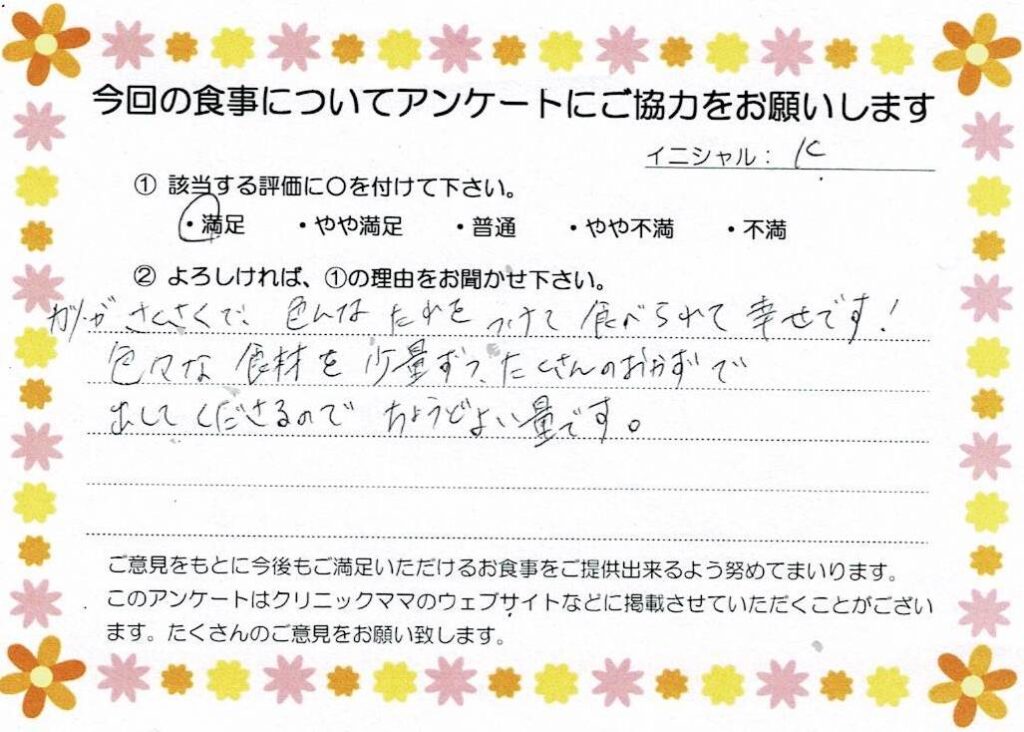 今回の食事についてアンケートにご協力をお願いします
イニシャル： K
① 該当する評価に〇を付けて下さい。
・満足 ・やや満足 ・普通 ・やや不満 ・不満
② よろしければ、①の理由をお聞かせ下さい。
がさくさくで、色んなたれをつけて食べられて幸せです！
色々な食材を少量ずつ、たくさんのおかずで
出してくださるのでちょうどよい量です。
ご意見をもとに今後もご満足いただけるお食事をご提供出来るよう努めてまいります。
このアンケートはクリニックママのウェブサイトなどに掲載させていただくことがござい
ます。たくさんのご意見をお願い致します。